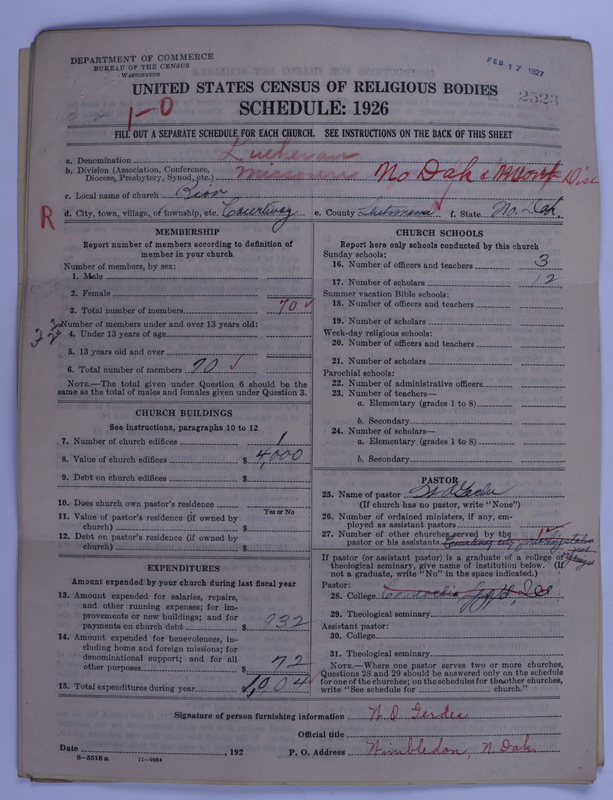 DEPARTMENT OF COMMERCE
BUREAU OF THE CENSUS
WASHINGTON
FEB 17 1927
2523
UNITED STATES CENSUS OF RELIGIOUS BODIES
SCHEDULE: 1926
1-0
FILL OUT A SEPARATE SCHEDULE FOR EACH CHURCH. SEE INSTRUCTIONS ON THE BACK OF THIS SHEET
a. Denomination Lutheran
b. Division (Association, Conference, Diocese, Presbytery, Synod, etc.) Missouri No Dak & Mont Dist
c. Local name of church Zion
R
d. City, town, village, or township, etc. Courtenay e. County Stutsman f. State No. Dak.
MEMBERSHIP
Report number of members according to definition of
member in your church
Number of members, by sex:
1. Male
2. Female
3. Total number of members 70 ✓
Number of members under and over 13 years old:
4. Under 13 years of age
5. 13 years old and over
6. Total number of members 70 ✓
NOTE.—The total given under Question 6 should be the
same as the total of males and females given under Question 3.
CHURCH BUILDINGS
See instructions, paragraphs 10 to 12
7. Number of church edifices 1
8. Value of church edifices $ 4,000
9. Debt on church edifices $
10. Does church own pastor's residence
Yes or No
11. Value of pastor's residence (if owned by
church) $
12. Debt on pastor's residence (if owned by
church) $
EXPENDITURES
Amount expended by your church during last fiscal year
13. Amount expended for salaries, repairs,
and other running expenses; for im-
provements or new buildings; and for
payments on church debt $ 932
14. Amount expended for benevolences, in-
cluding home and foreign missions; for
denominational support; and for all
other purposes $ 72
15. Total expenditures during year $1,004 ✓
CHURCH SCHOOLS
Report here only schools conducted by this church
Sunday schools:
16. Number of officers and teachers 3
17. Number of scholars 12
Summer vacation Bible schools:
18. Number of officers and teachers
19. Number of scholars
Week-day religious schools:
20. Number of officers and teachers
21. Number of scholars
Parochial schools:
22. Number of administrative officers
23. Number of teachers—
a. Elementary (grades 1 to 8)
b. Secondary
24. Number of scholars—
a. Elementary (grades 1 to 8)
b. Secondary
PASTOR
25. Name of pastor
(If church has no pastor, write "None")
26. Number of ordained ministers, if any, em-
ployed as assistant pastors
27. Number of other churches served by the
pastor or his assistants
If pastor (or assistant pastor) is a graduate of a college or
theological seminary, give name of institution below. (If
not a graduate, write "No" in the space indicated.)
Pastor:
28. College Concordia
29. Theological seminary
Assistant pastor:
30. College
31. Theological seminary
NOTE.—Where one pastor serves two or more churches,
Questions 28 and 29 should be answered only on the schedule
for one of the churches; on the schedules for the other churches,
write "See schedule for church."
Signature of person furnishing information W D Gerdes
Official title
Date , 192
P. O. Address Wimbledon, N. Dak.
8—5518 a 11—9084